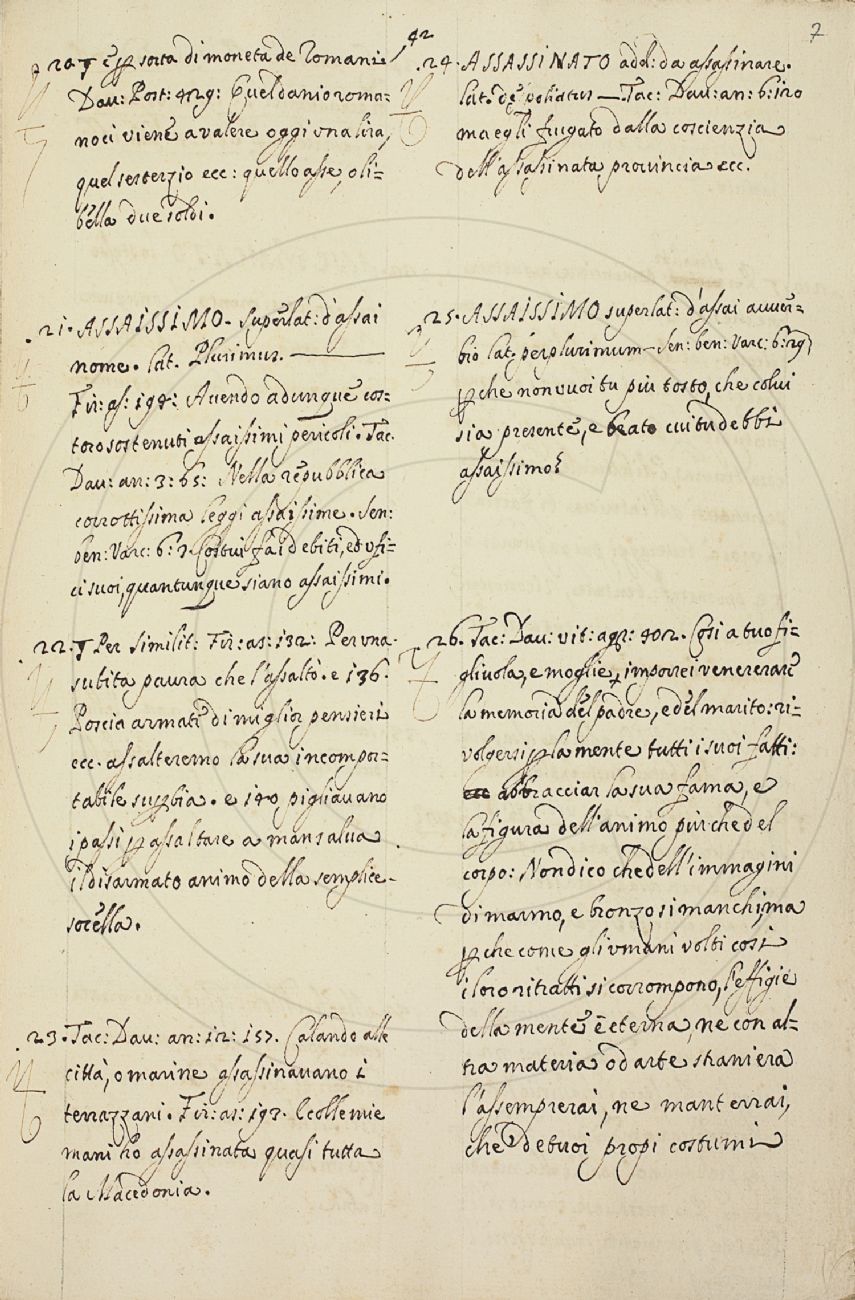 42
7
20. ¶ È p sorta di moneta de Romani
Dav: Post: 429: E quel danio roma=
no ci viene a valere oggi una lira,
quel sesterzio ecc: quello asse, o li=
bella due soldi.
21. ASSAISSIMO. Superlat: d'assai
nome. lat. Plurimus.
Fir: as: 194: Avendo adunque cos=
toro sostenuti assaissimi pericoli. Tac.
Dav: an: 3: 65: Nella repubblica
corrottissima leggi assaissime. Sen:
ben: Varc: 6: 7. Costui fa i debiti, ed ufi=
ci suoi, quantunque siano assaissimi.
22. ¶ Per Similit: Fir: as: 132: Per una
subita paura che l'assaltò. e 136.
Poscia armati di miglior pensieri
ecc. assalteremo la sua incompor=
tabile supbia. e 140 pigliavano
i passi p assaltare a man salva
il disarmato animo della semplice
sorella.
23. Tac: Dav: an: 12: 157. Calando alle
città, o marine assassinavano i
terrazzani. Fir: as: 193. E colle mie
mani hò assassinata quasi tutta
la Macedonia.
24. ASSASSINATO add: da assassinare.
lat. depeculatus — Tac: Dav: an: 6: 120
ma egli frugato dalla coscienzia
dell'assassinata provincia ecc.
25. ASSAISSIMO superlat: d'assai avver=
bio lat. perplurimum — Sen: ben: Varc: 6: 29
p che non vuoi tu più tosto, che colui
sia presente, e beato cui tu debbi
assaissimo?
26. Tac: Dav: vit: agr: 402. Così a tuo fi=
gliuola, e moglie, imporrei venerare
la memoria del padre, e del marito: ri=
volgersi p la mente tutti i suoi fatti:
abbracciar la sua fama, e
la figura dell'animo più che del
corpo: Non dico che dell'immagini
di marmo, e bronzo si manchi, ma
p che come gli umani volti così
i loro ritratti si corrompono, l'effigie
della mente è eterna, ne con al=
tra materia, od arte straniera
l'assemprerai, ne manterrai,
che de tuoi propi costumi